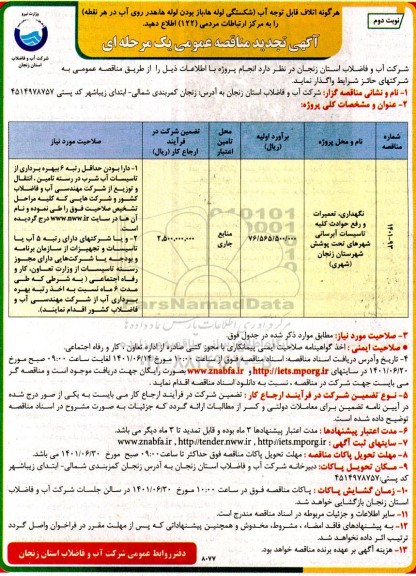 نوبت دوم
هرگونه اتلاف قابل توجه آب (شکستگی لوله ها،باز بودن لوله ها،هدر روی آب در هر نقطه)
را به مرکز ارتباطات مردمی (۱۲۲) اطلاع دهید.
وزارت نیرو
شرکت آب و فاضلاب
استان زنجان
آگهی تجدید مناقصه عمومی یک مرحله ای
شرکت آب و فاضلاب استان زنجان در نظر دارد انجام پروژه با اطلاعات ذیل را از طریق مناقصه عمومی به
شرکتهای حائز شرایط واگذار نماید.
۱- نام و نشانی مناقصه گزار: شرکت آب و فاضلاب استان زنجان به آدرس: زنجان کمربندی شمالی- ابتدای زیباشهر کد پستی ۴۵۱۴۹۷۸۷۵۷
۲- عنوان و مشخصات کلی پروژه:
شماره مناقصه
نام و محل پروژه
برآورد اولیه (ریال)
محل تامین اعتبار
تضمین شرکت در فرآیند ارجاع کار (ریال)
صلاحیت مورد نیاز
نگهداری، تعمیرات
و رفع حوادث کلیه
تاسیسات آبرسانی
شهرهای تحت پوشش
شهرستان زنجان
(شهری)
۷۶/۵۶۵/۵۰۰/۰۰۰
منابع جاری
۲,۵۰۰,۰۰۰,۰۰۰
۱- دارا بودن حداقل رتبه ۶ بهره برداری از
تاسیسات آب شرب در رسته تامین، انتقال
و توزیع از شرکت مهندسی آب و فاضلاب
کشور و شرکت هایی که کلیه مراحل
تشخیص صلاحیت فوق را طی نموده و نام
آن ها در سایت www.nww.ir درج گردیده
است.
۲- و یا شرکتهای دارای رتبه ۵ آب یا
تاسیسات و تجهیزات از سازمان برنامه
و بودجه یا شرکت‌هایی دارای مجوز
رسته تاسیسات از وزارت تعاون، کار و
رفاه اجتماعی (به شرطی که طی
مدت ۶ ماه نسبت به اخذ رتبه بهره
برداری از آب از شرکت مهندسی آب و
فاضلاب کشور اقدام نمایند).
۳- صلاحیت مورد نیاز: مطابق موارد ذکر شده در جدول فوق.
صلاحیت ایمنی: اخذ گواهینامه صلاحیت ایمنی پیمانکاری یا مجوز کتبی صادره از اداره تعاون، کار و رفاه اجتماعی.
۴- تاریخ وآدرس دریافت اسناد مناقصه: اسناد مناقصه فوق از ساعت ۱۰:۰۰ مورخ ۱۴۰۱/۰۶/۱۴ لغایت ساعت ۰۹:۰۰ صبح مورخ
۱۴۰۱/۰۶/۲۰ در سایتهای http://iets.mporg.ir و www.znabfa.ir بصورت رایگان جهت دریافت موجود است و مناقصه گر
می بایست جهت شرکت در مناقصه، نسبت به دانلود اسناد مناقصه اقدام نماید.
۵- نوع تضمین شرکت در فرآیند ارجاع کار: تضمین شرکت در فرآیند ارجاع کار می بایست به یکی از صور درج شده
در آیین نامه تضمین برای معاملات دولتی و کسر از مطالبات ارائه گردد که جزئیات به صورت مشروح در اسناد مناقصه
توضیح داده شده است.
۶- مدت اعتبار پیشنهادها: مدت اعتبار پیشنهادها ۳ ماه بوده و قابل تمدید تا ۳ ماه دیگر می باشد.
۷- سایتهای ثبت آگهی: www.znabfa.ir , http://tender.nww.ir , http://iets.mporg.ir
۸- مهلت تحویل پاکات مناقصه: مهلت تحویل پاکات مناقصه فوق حداکثر تا ساعت ۰۹:۰۰ صبح مورخ ۱۴۰۱/۰۶/۳۰ می باشد.
۹- مکان تحویل پاکات: دبیرخانه شرکت آب و فاضلاب استان زنجان به آدرس: زنجان کمربندی شمالی- ابتدای زیباشهر
کد پستی ۴۵۱۴۹۷۸۷۵۷
۱۰- زمان گشایش پاکات: پاکات مناقصه فوق در ساعت ۱۰:۰۰ مورخ ۱۴۰۱/۰۶/۳۰ در سالن جلسات شرکت آب و فاضلاب
استان زنجان بازگشایی خواهد شد.
۱۱- سایر اطلاعات و جزئیات مربوطه در اسناد مناقصه مندرج است.
۱۲- به پیشنهادهای فاقد امضاء، مشروط، مخدوش و همچنین پیشنهاداتی که پس از مهلت مقرر در فراخوان واصل گردد
ترتیب اثر داده نخواهد شد.
۱۳- هزینه آگهی بر عهده برنده مناقصه خواهد بود.
۸۰۷۷
دفتر روابط عمومی شرکت آب و فاضلاب استان زنجان